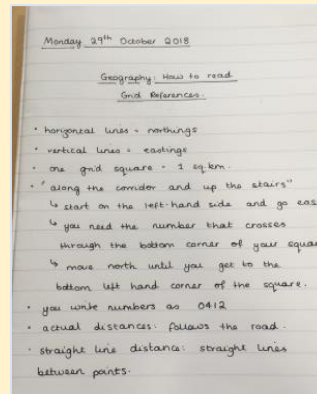 Monday 29th October 2018
Geography: How to read
Grid References.
• horizontal lines = northings
• vertical lines = eastings
• one grid square = 1 sq km.
• "along the corridor and up the stairs"
↳ start on the left-hand side and go eas
↳ you need the number that crosses
through the bottom corner of your squar
↳ move north until you get to the
bottom left hand corner of the square.
• you write numbers as 0412
• actual distances: follows the road.
• straight line distance: straight lines
between points.